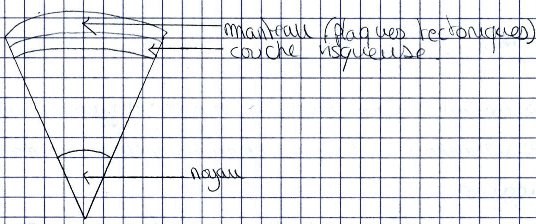 manteau (plaques tectoniques)
couche visqueuse.
noyau